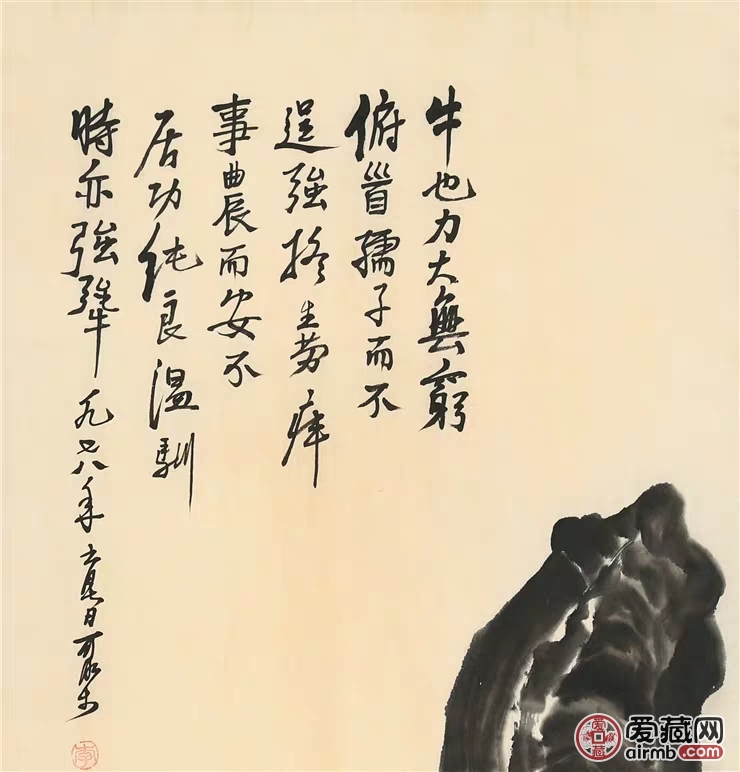 牛也力大無窮
俯首孺子而不
逞強終生勞瘁
事農而安不
居功純良溫馴
時亦強犟 九七八年 日可染
李
爱藏网
airmb.com